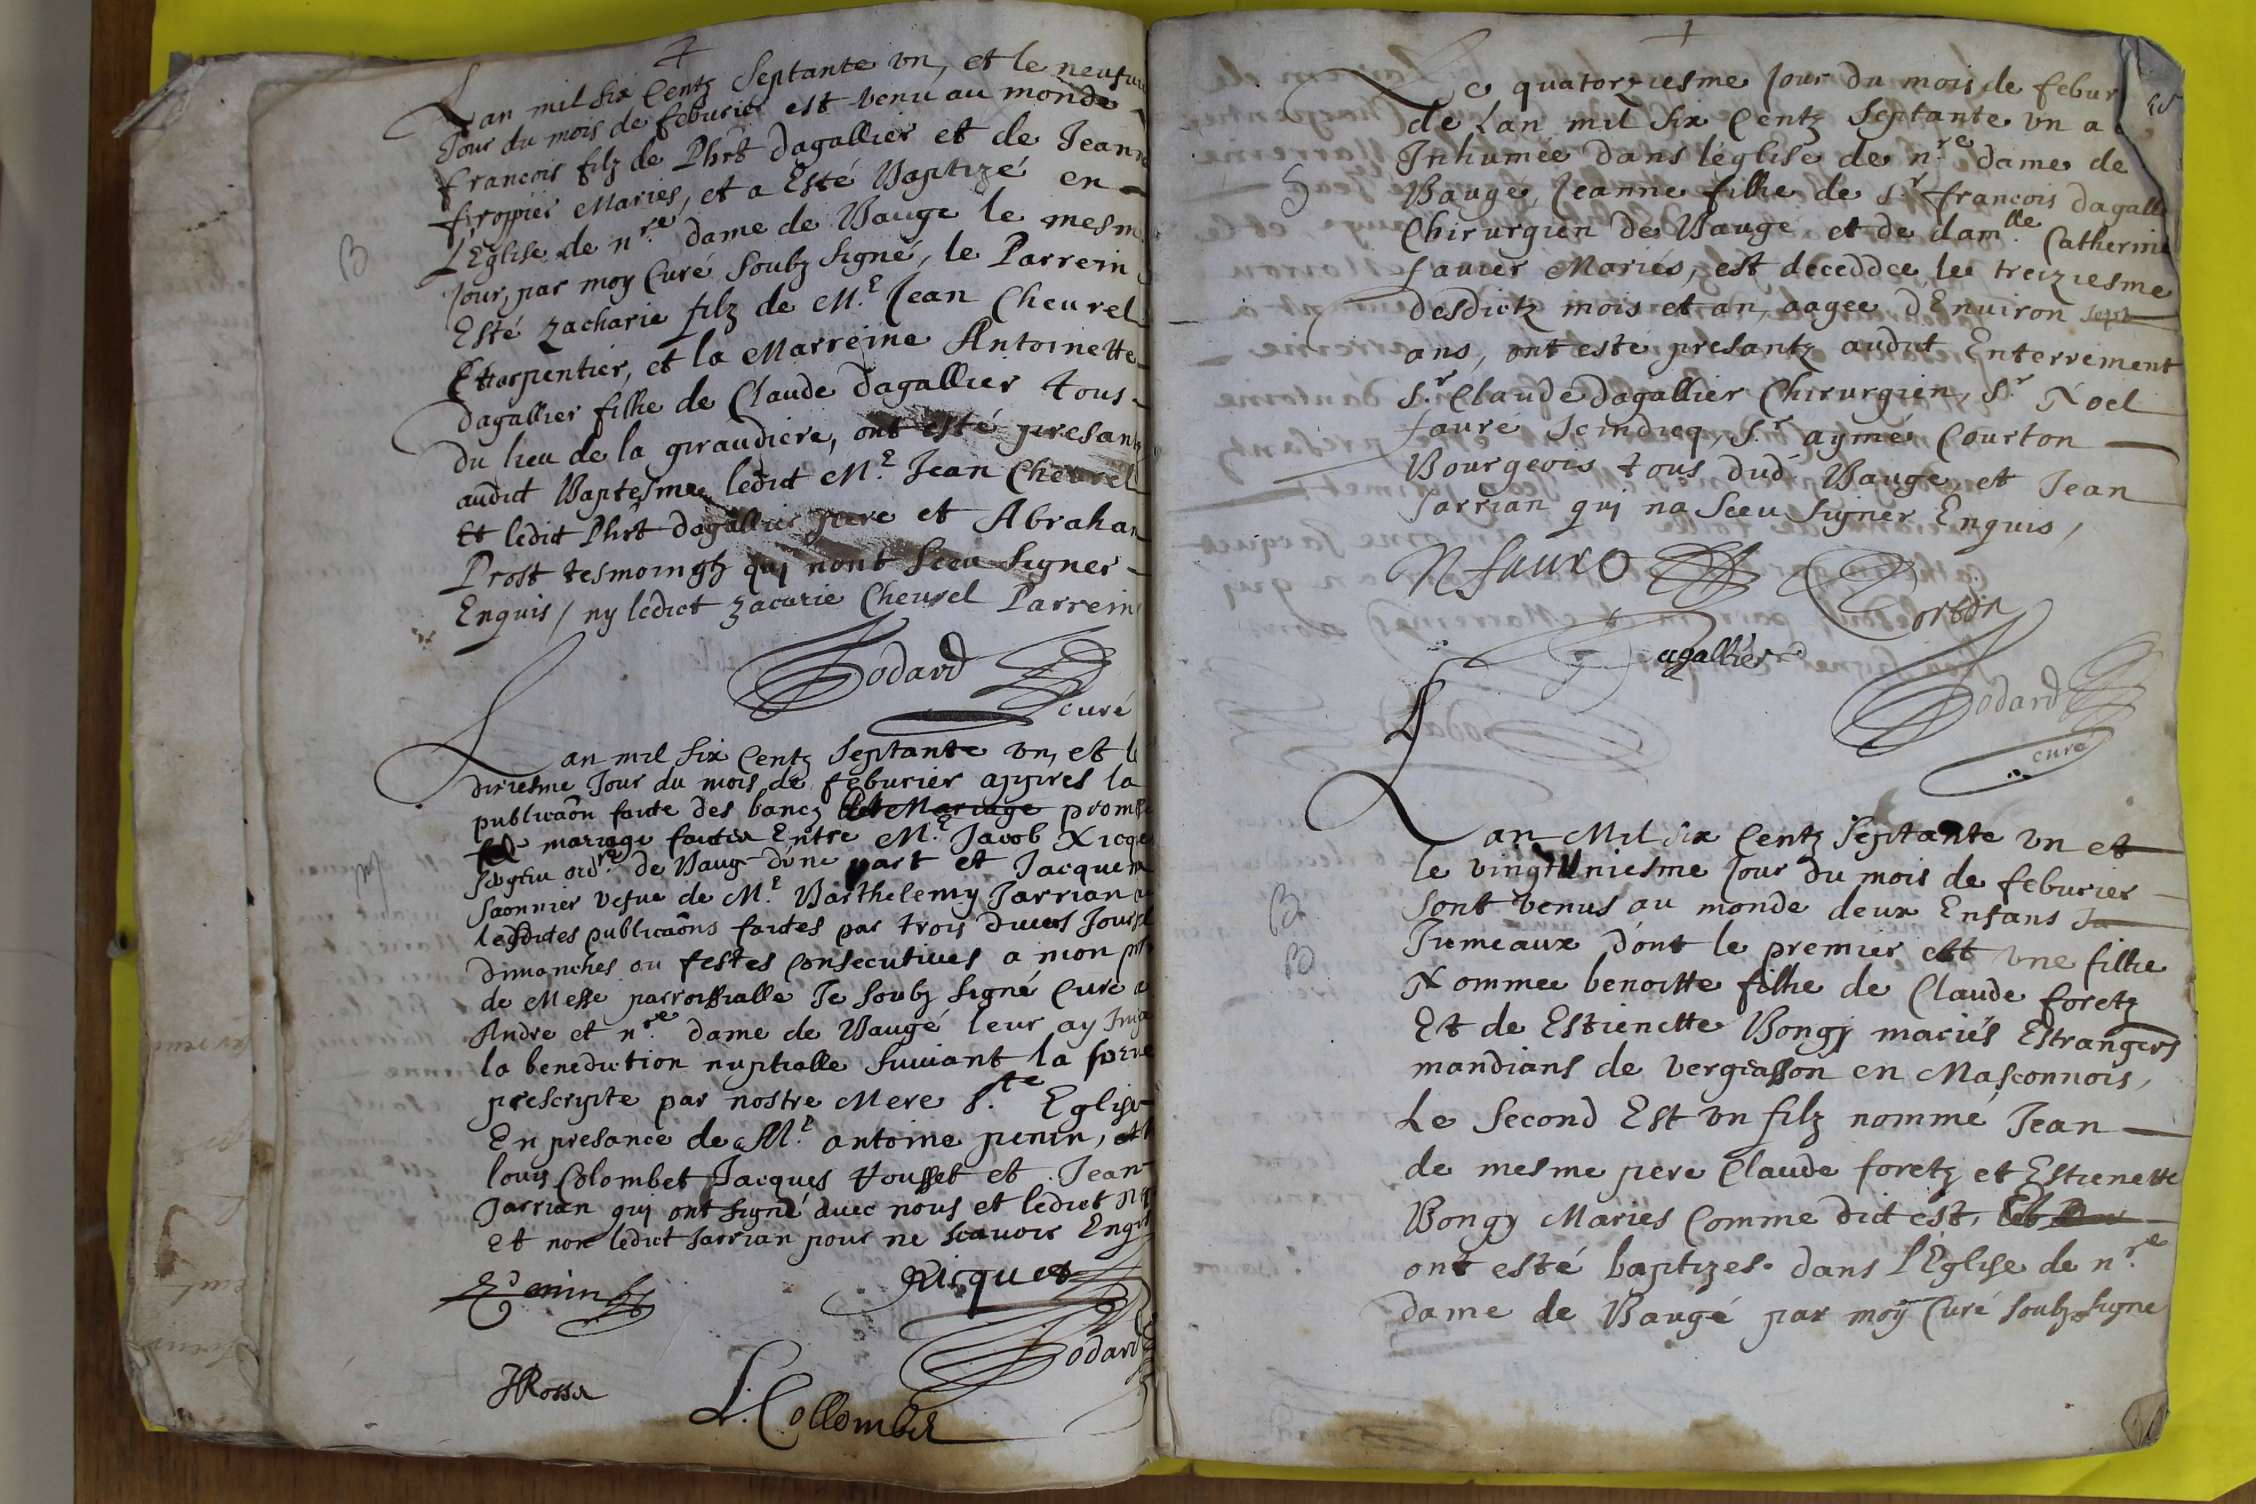 Lan mil six Centz septante vn, et le neufu
Jour du mois de feburier est venu au monde
francois filz de Phrt dagallier et de Jeanne
froppier Mariés, et a Esté Baptizé en
L'Eglise de nre dame de Baugé le mesm
Jour, par moy Curé soubz signé, le Parrein
B
Esté Zacharie filz de Me Jean Cheurel
Charpentier, et la Marreine Antoinette
dagallier filhe de Claude dagallier tous
du lieu de la giraudiere, ont esté presantz
audit Baptesme ledict Me Jean Cheurel
Et ledit Phrt dagallier pere et Abraham
Prost tesmoingtz qui nont sceu signer
Enquis / ny ledict zacarie Cheurel Parrein
Godard
curé
Lan mil six Centz septante vn, et le
dixiesme Jour du mois de feburier appres la
publicaõn faite des bancz de Mariage prom
mariage faicte Entre Me Jacob Ricque
ordre de Baugé dune part et Jacquem
Saonnier vefue de Me Barthelemy Jarrian
lesdites publicaõns faites par trois diuers Jours
dimanches ou festes Consecutiues a mon
de Messe parroissialle Je soubz signé Curé
Andre et nre dame de Baugé leur ay
la benediction nuptialle suiuant la forme
prescripte par nostre Mere Ste Eglise
En presance de Me antoine penin, et
louis Colombet Jacques Rousset et Jean
Jarrian qui ont signé auec nous et ledict
et non ledict Jarrian pour ne scauoir Enquis
Penin
Ricquet
Godard
L. Collombet
Le quatorziesme Jour du mois de febur
de Lan mil six Centz Septante vn a
Inhumée dans léglise de nre dame de
S
Baugé, Jeanne filhe de Sr francois dagalli
Chirurgien de Baugé et de damlle Catherine
fauier Mariés, est deceddee le treiziesme
desdictz mois et an, aagee dEnuiron sept
ans, ont esté presantz audit Enterrement
Sr Claude dagallier Chirurgien, Sr Noel
faure Scindicq, Sr aymé Courton
Bourgeois tous dud. Baugé, et Jean
Jarrian qui na Sceu signer Enquis,
N faure
Corton
Dagallier
Godard
curé
Lan Mil six Centz septante vn et
le vingtuniesme Jour du mois de feburier
B
sont venus au monde deux Enfans Ju
B
Jumeaux dont le premier est vne filhe
Nommee benoitte filhe de Claude foretz
Et de Estienette Bongy mariés Estrangers
mandians de vergiasson en Masconnois,
Le Second Est vn filz nommé Jean
de mesme pere Claude foretz et Estienette
Bongy Maries Comme dict est,
ont esté baptizes dans l'Eglise de nre
dame de Baugé par moy Curé soubz signe